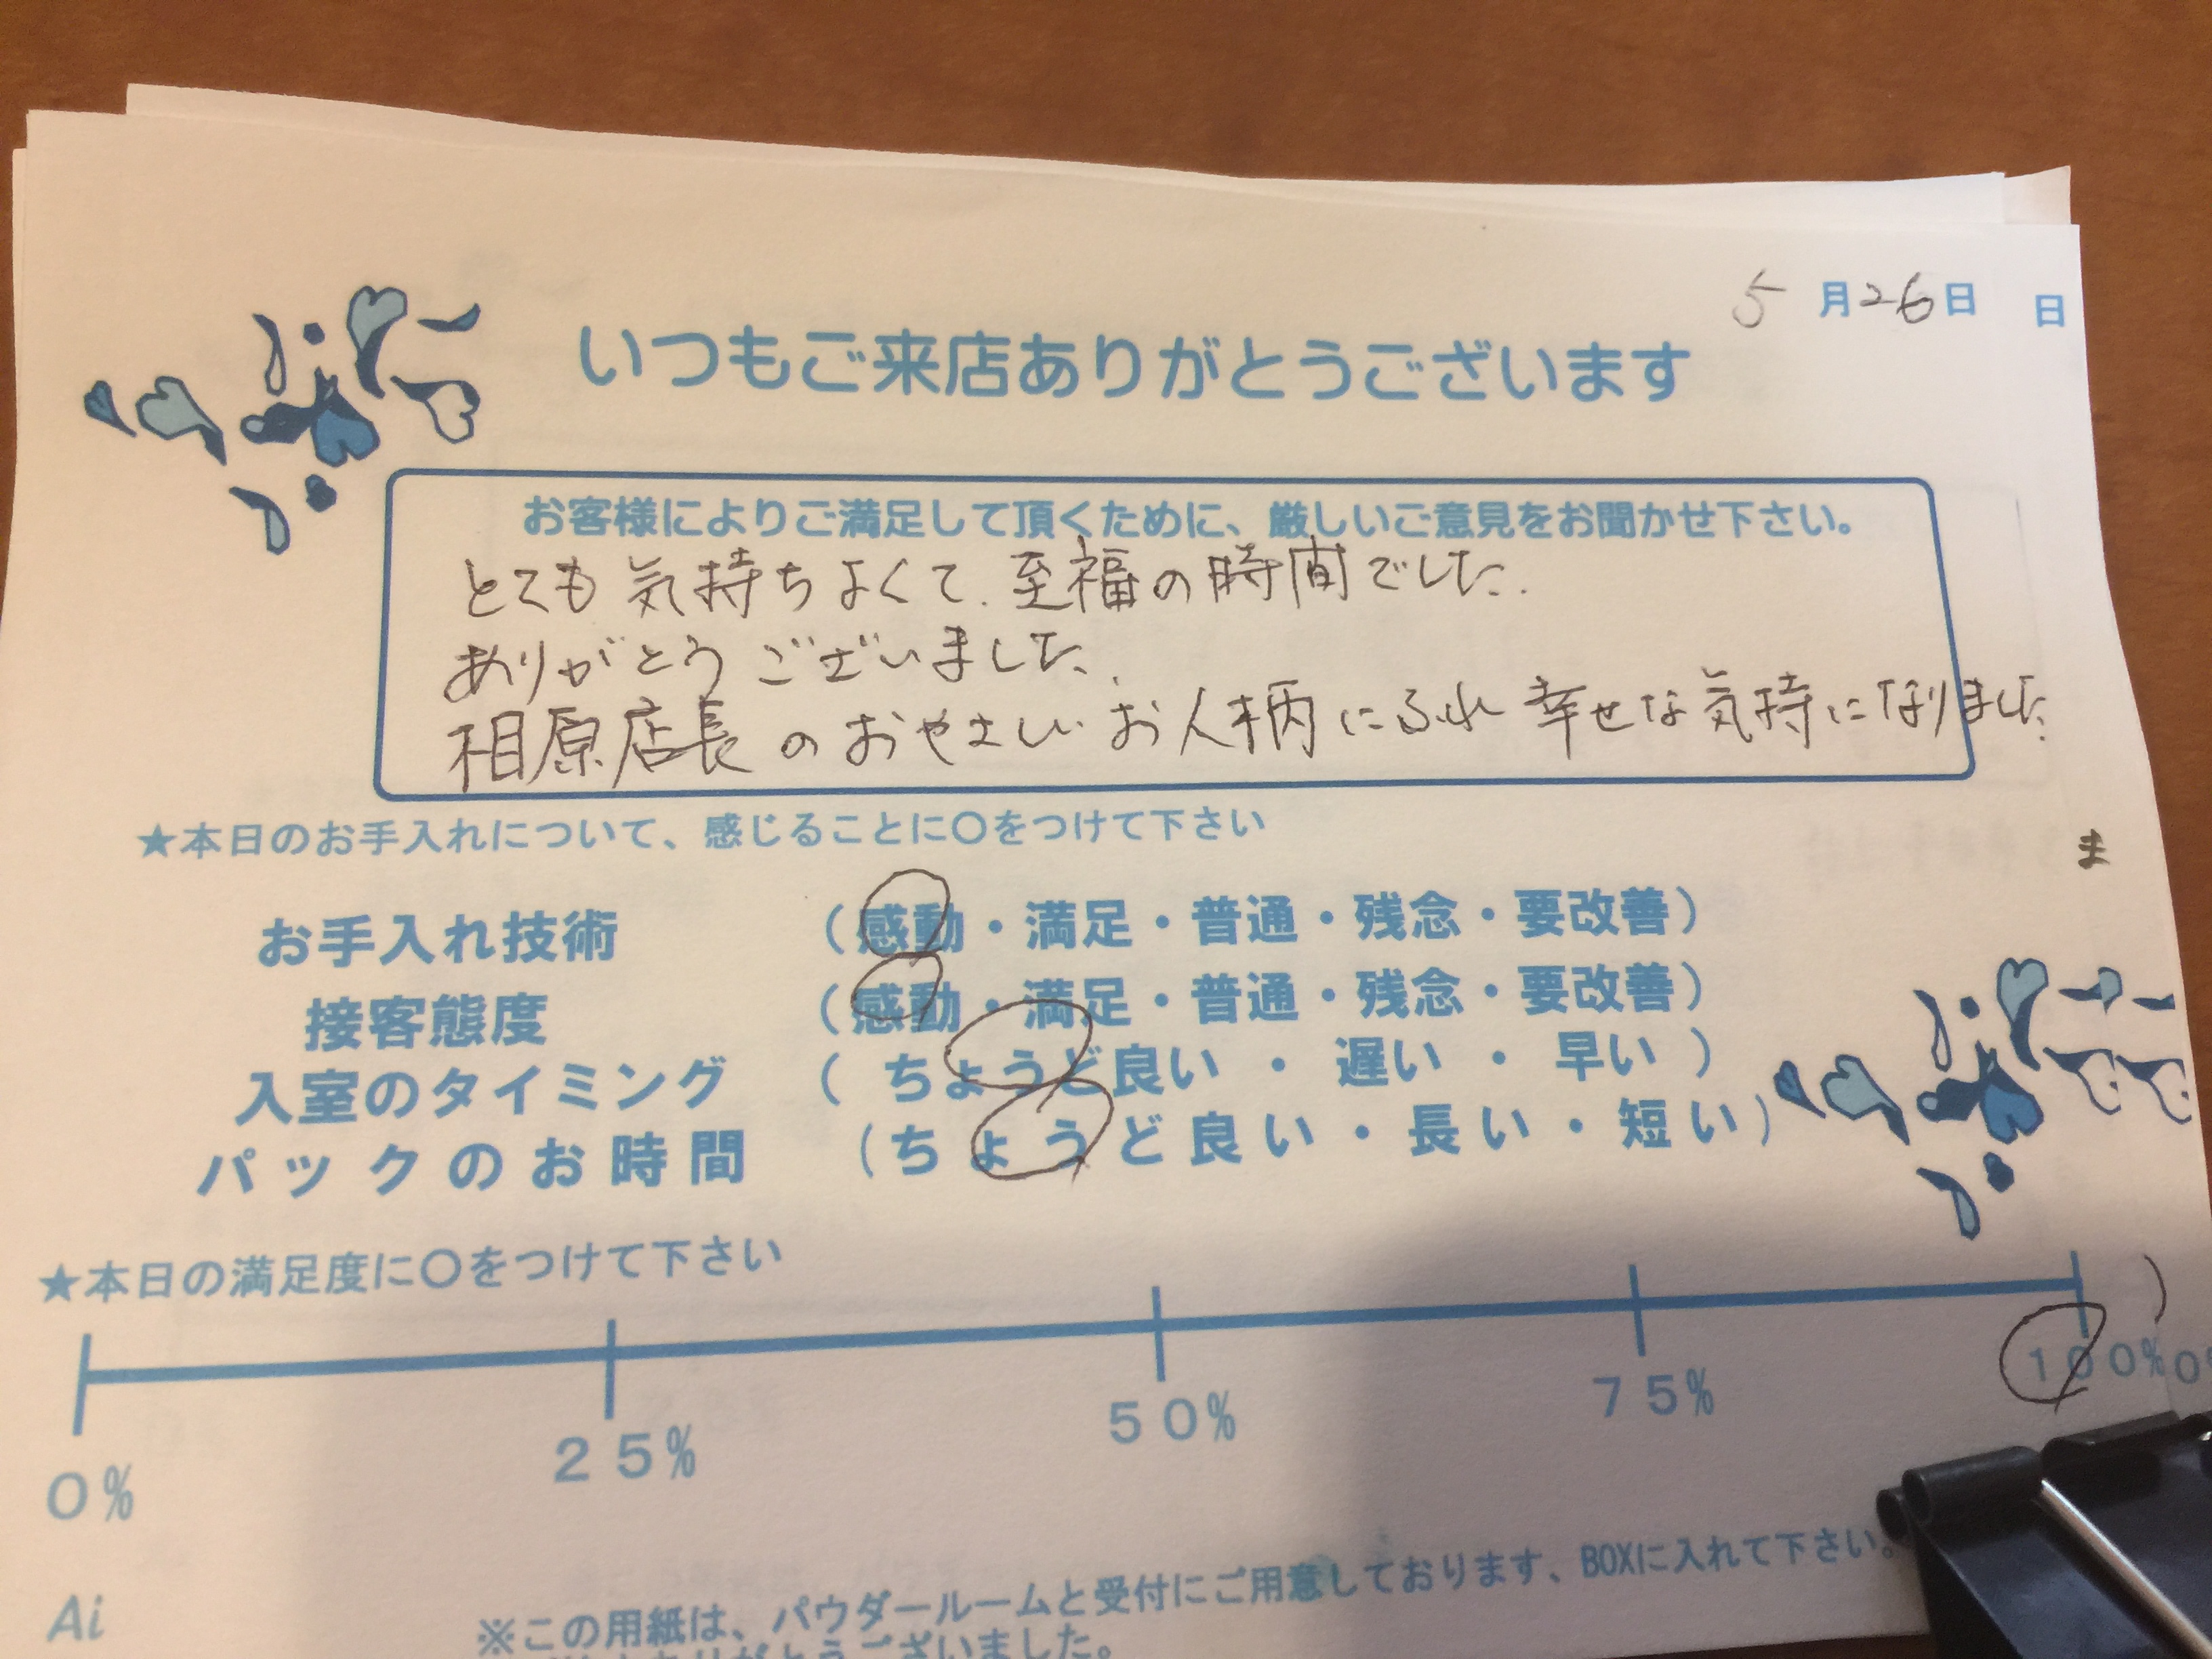 5月26日 日
いつもご来店ありがとうございます
お客様によりご満足して頂くために、厳しいご意見をお聞かせ下さい。
とても気持ちよくて、至福の時間でした。
ありがとうございました。
相原店長のおやさしいお人柄にふれ幸せな気持になりました
★本日のお手入れについて、感じることに○をつけて下さい
ま
お手入れ技術 (感動・満足・普通・残念・要改善)
接客態度 (感動・満足・普通・残念・要改善)
入室のタイミング (ちょうど良い・遅い・早い)
パックのお時間 (ちょうど良い・長い・短い)
★本日の満足度に○をつけて下さい
0% 25% 50% 75% 100%
Ai
※この用紙は、パウダールームと受付にご用意しております、BOXに入れて下さい。
ありがとうございました。